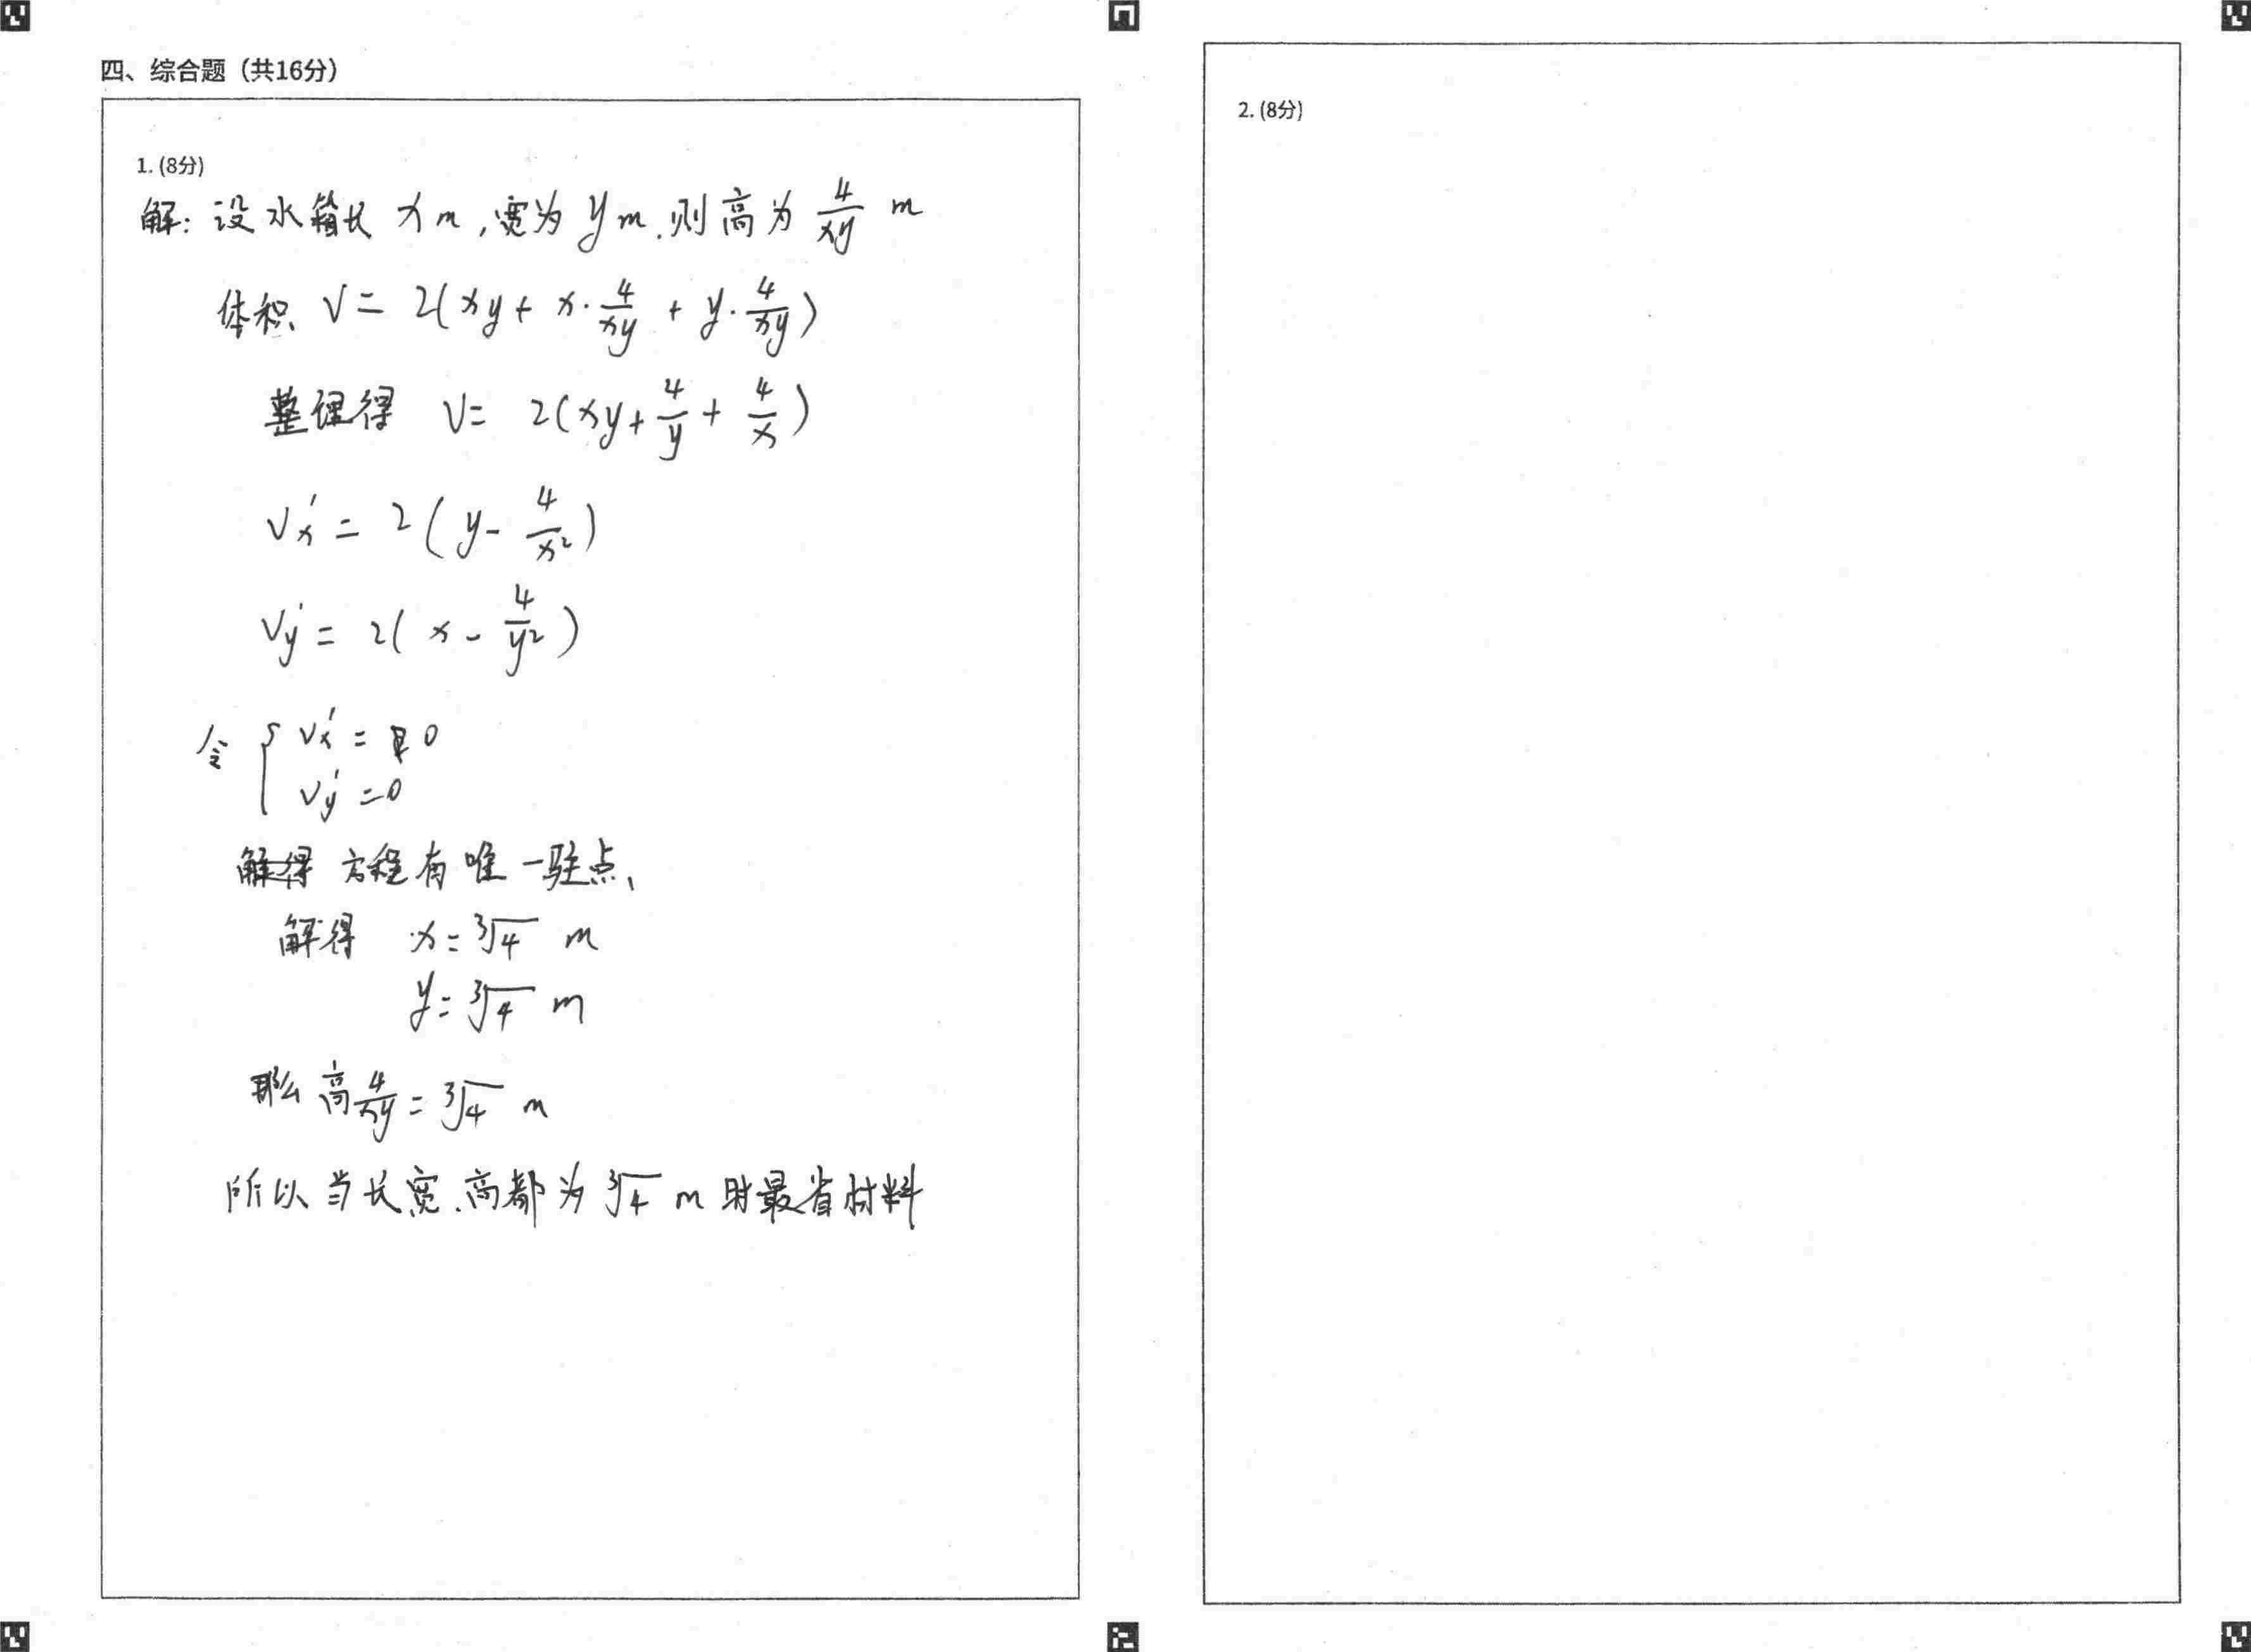 四、综合题（共16分）
1. (8分)
解：设水箱长 x m，宽为 y m，则高为 4/xy m
体积 V = 2(xy + x·4/xy + y·4/xy)
整理得 V = 2(xy + 4/y + 4/x)
Vx′ = 2(y - 4/x²)
Vy′ = 2(x - 4/y²)
令 { Vx′ = 0
Vy′ = 0
解得 方程有唯一驻点、
解得 x = ∛4 m
y = ∛4 m
那么高 4/xy = ∛4 m
所以当长宽、高都为 ∛4 m 时最省材料
2. (8分)